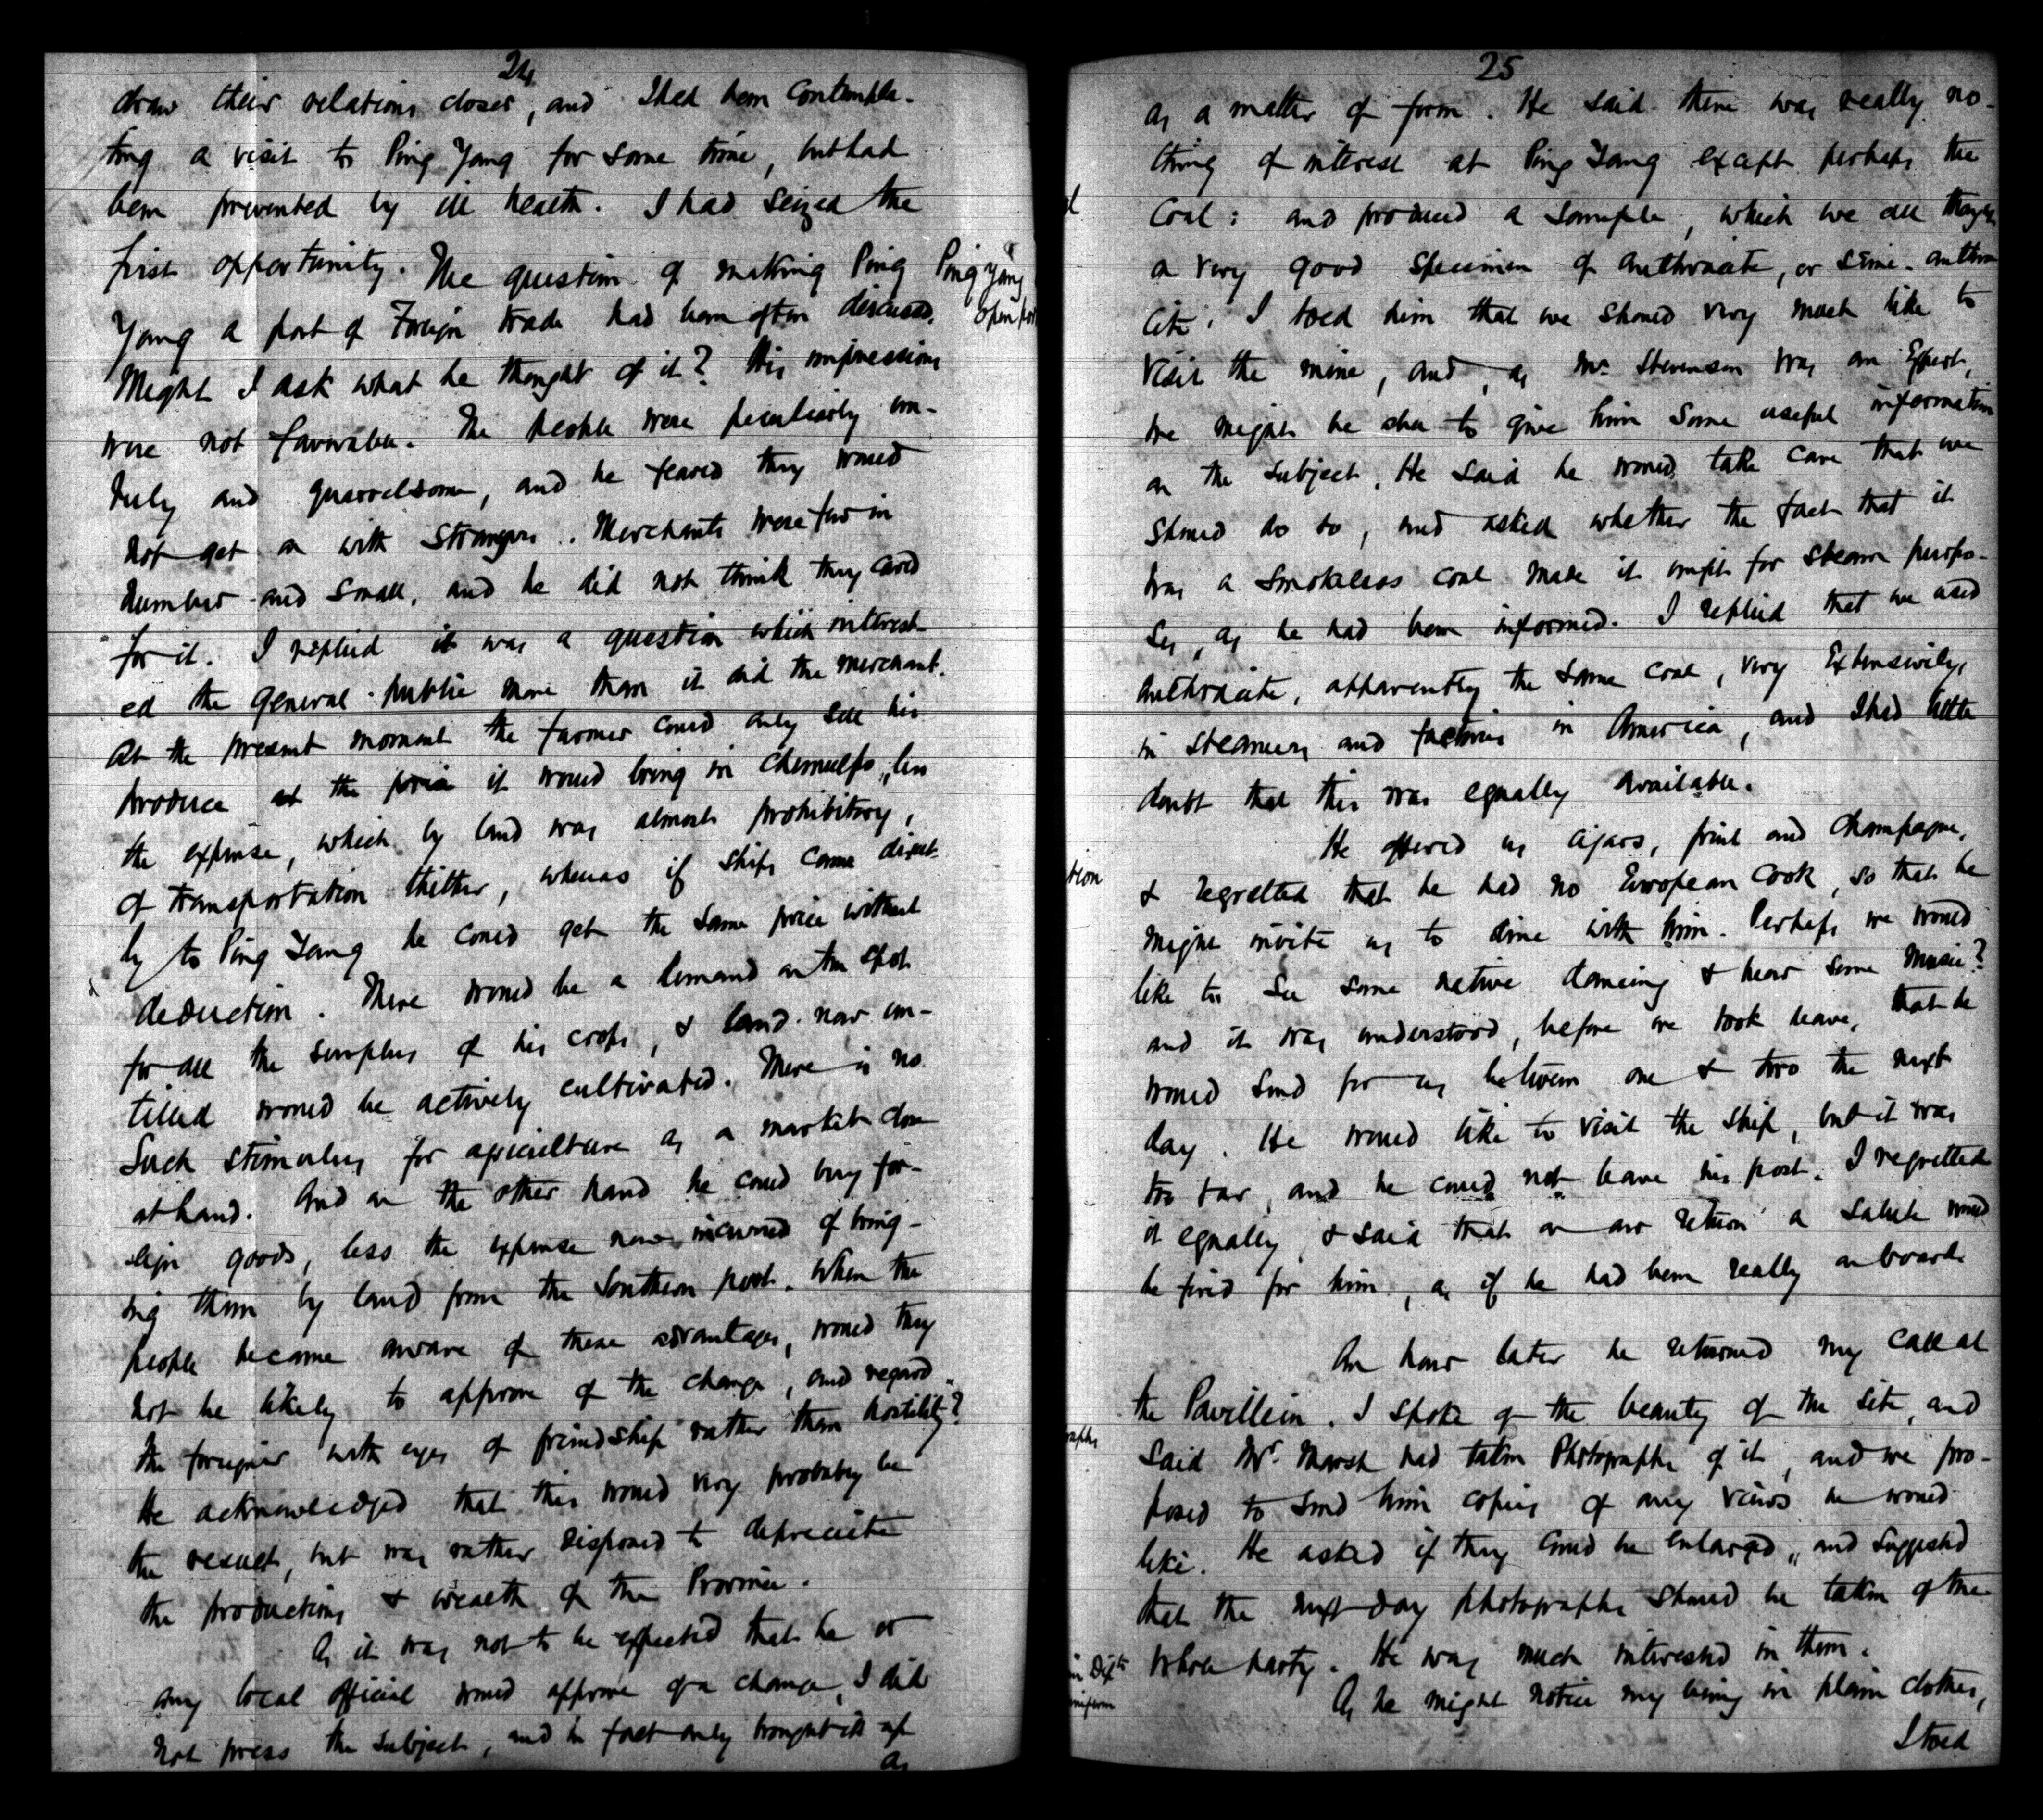 24
draw their relations closer, and I had been contempla-
ting a visit to Ping Yang for some time, but had
been prevented by ill health. I had seized the
first opportunity. The question of making Ping
Ping Yang
open
Yang a port of Foreign trade had been often discussed.
Might I ask what he thought of it? His impressions
were not favorable. The people were peculiarly un-
ruly and quarrelsome, and he feared they would
not get on with strangers. Merchants were few in
number and small, and he did not think they cared
for it. I replied it was a question which interest-
ed the general public more than it did the merchant.
At the present moment the farmer could only sell his
produce at the price it would bring in Chemulpo, less
the expense, which by land was almost prohibitory,
of transportation thither, whereas if ships came direct-
ly to Ping Yang he could get the same price without
deduction. There would be a demand on the spot
for all the surplus of his crops, & land now un-
tilled would be actively cultivated. There is no
such stimulus for agriculture as a market close
at hand. And on the other hand he could buy for-
eign goods, less the expense now incurred of bring-
ing them by land from the Southern port. When the
people became aware of these advantages, would they
not be likely to approve of the change, and regard
the foreigner with eyes of friendship rather than hostility?
He acknowledged that this would very probably be
the result, but was rather disposed to depreciate
the productions & wealth of the Province.
As it was not to be expected that he or
any local official would approve of a change, I did
not press the subject, and in fact only brought it up
as
25
as a matter of form. He said there was really no-
thing of interest at Ping Yang except perhaps the
coal: and produced a sample, which we all thought
a very good specimen of anthracite, or semi-anthra
cite. I told him that we should very much like to
visit the mine, and, as Mr. Stevenson was an Expert,
we might be able to give him some useful information
on the subject. He said he would take care that we
should do so, and asked whether the fact that it
was a smokeless coal made it unfit for steam purpo-
ses, as he had been informed. I replied that we used
anthracite, apparently the same coal, very extensively,
in steamers and factories in America, and I had little
doubt that this was equally available.
He offered us cigars, fruit and champagne,
tion
& regretted that he had no European cook, so that he
might invite us to dine with him. Perhaps we would
like to see some native dancing & hear some music?
and it was understood, before we took leave, that he
would send for us between one & two the next
day. He would like to visit the ship, but it was
too far, and he could not leave his post. I regretted
it equally, & said that on our return a salute would
be fired for him, as if he had been really on board.
An hour later he returned my call at
the Pavillion. I spoke of the beauty of the site, and
raphs
said Mr. Marsh had taken Photographs of it, and we pro-
posed to send him copies of any views he would
like. He asked if they could be enlarged, and suggested
that the next day photographs should be taken of the
whole party. He was much interested in them.
in Dipt
uniform
As he might notice my being in plain clothes,
I told